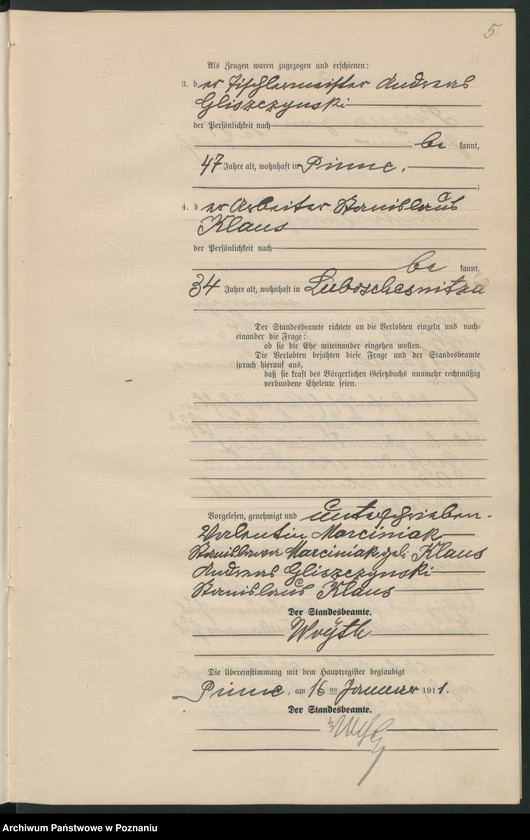 5
Als Zeugen waren zugezogen und erschienen:
3. der Tischlermeister Andreas
Gliszczynski
der Persönlichkeit nach
be kannt,
47 Jahre alt, wohnhaft in Pinne.
4. der Arbeiter Stanislaus
Klaus
der Persönlichkeit nach
be kannt,
34 Jahre alt, wohnhaft in Luboschesnitza
Der Standesbeamte richtete an die Verlobten einzeln und nach-
einander die Frage:
ob sie die Ehe miteinander eingehen wollen.
Die Verlobten bejahten diese Frage und der Standesbeamte
sprach hierauf aus,
daß sie kraft des Bürgerlichen Gesetzbuchs nunmehr rechtmäßig
verbundene Eheleute seien.
Vorgelesen, genehmigt und unterschrieben.
Valentin Marciniak
Marciniak geb. Klaus
Andreas Gliszczynski
Stanislaus Klaus
Der Standesbeamte.
Woyth
Die Übereinstimmung mit dem Hauptregister beglaubigt
Pinne, am 16 ten Januar 1911.
Der Standesbeamte.
Archiwum Państwowe w Poznaniu